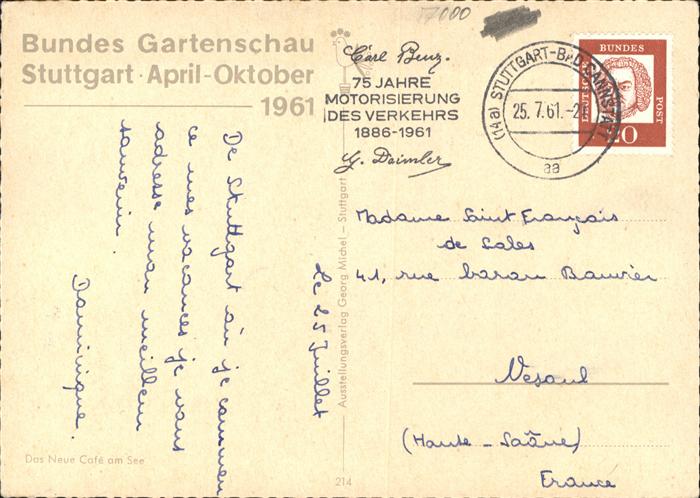 17000
Bundes Gartenschau
Stuttgart · April-Oktober
1961
Carl Benz.
75 JAHRE
MOTORISIERUNG
DES VERKEHRS
1886-1961
G. Daimler
(14a) STUTTGART-BAD CANNSTATT
25. 7. 61. - 2
aa
BUNDES
POST
DEUTSCHE
20
Le 25 Juillet
De Stuttgart où je commen
ce mes vacances je vous
adresse mon meilleur
souvenir.
Dominique.
Madame Saint François
de Sales
41, rue baron Bouvier
Vesoul
(Haute-Saône)
France
Ausstellungsverlag Georg Michel – Stuttgart
Das Neue Café am See
214